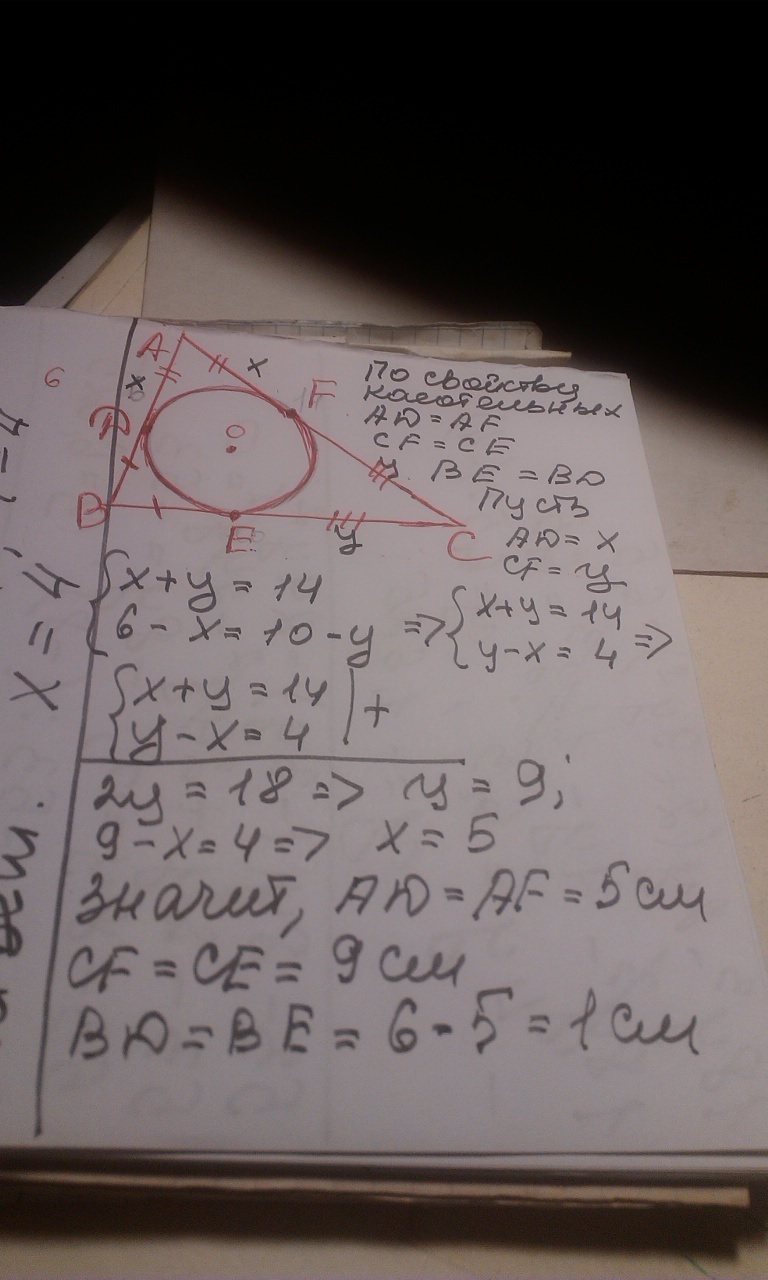 6
A
x
x
F
D
O
B
E
y
y
C
По свойству
касательных
AD = AF
CF = CE
BE = BD
Пусть
AD = x
CF = y
{ x + y = 14
{ 6 - x = 10 - y => { x + y = 14
{ y - x = 4 =>
{ x + y = 14 | +
{ y - x = 4
2y = 18 => y = 9;
9 - x = 4 => x = 5
Значит, AD = AF = 5 см
CF = CE = 9 см
BD = BE = 6 - 5 = 1 см
x = 4